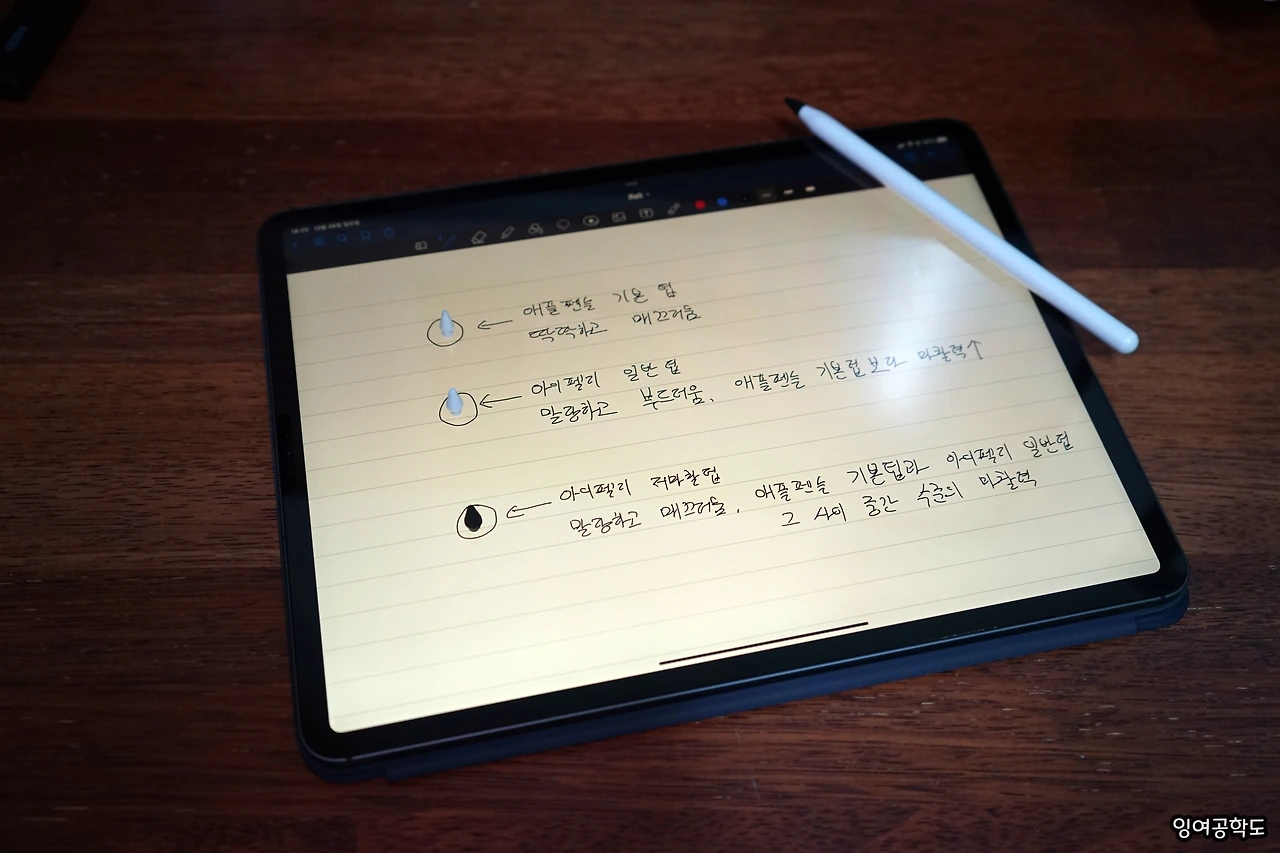 애플펜슬 기본 팁
딱딱하고 매끄러움
아이펠리 일반 팁
말랑하고 부드러움, 애플펜슬 기본팁보다 마찰력↑
아이펠리 저마찰 팁
말랑하고 매끄러움, 애플펜슬 기본팁과 아이펠리 일반팁
그 사이 중간 수준의 마찰력
잉여공학도